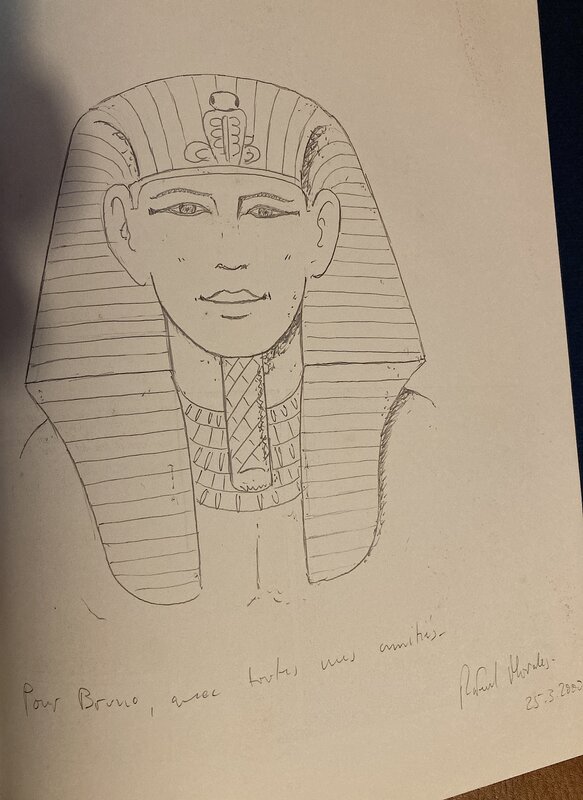 Pour Bruno, avec toutes mes amitiés.
Rafael Morales.
25.3.2000